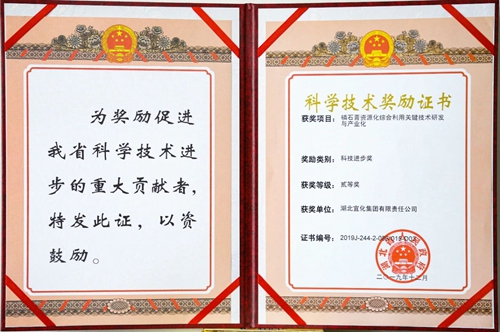 为奖励促进
我省科学技术进
步的重大贡献者,
特发此证,以资
鼓励。
科学技术奖励证书
获奖项目: 磷石膏资源化综合利用关键技术研发
与产业化
奖励类别: 科技进步奖
获奖等级: 贰等奖
获奖单位: 湖北宜化集团有限责任公司
证书编号:
湖北省人民政府
二〇一九年十二月